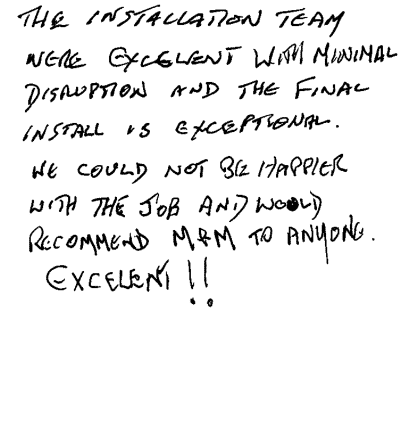 THE INSTALLATION TEAM
WERE EXCELENT WITH MINIMAL
DISRUPTION AND THE FINAL
INSTALL IS EXCEPTIONAL.
WE COULD NOT BE HAPPIER
WITH THE JOB AND WOULD
RECOMMEND M&M TO ANYONE.
EXCELENT!!